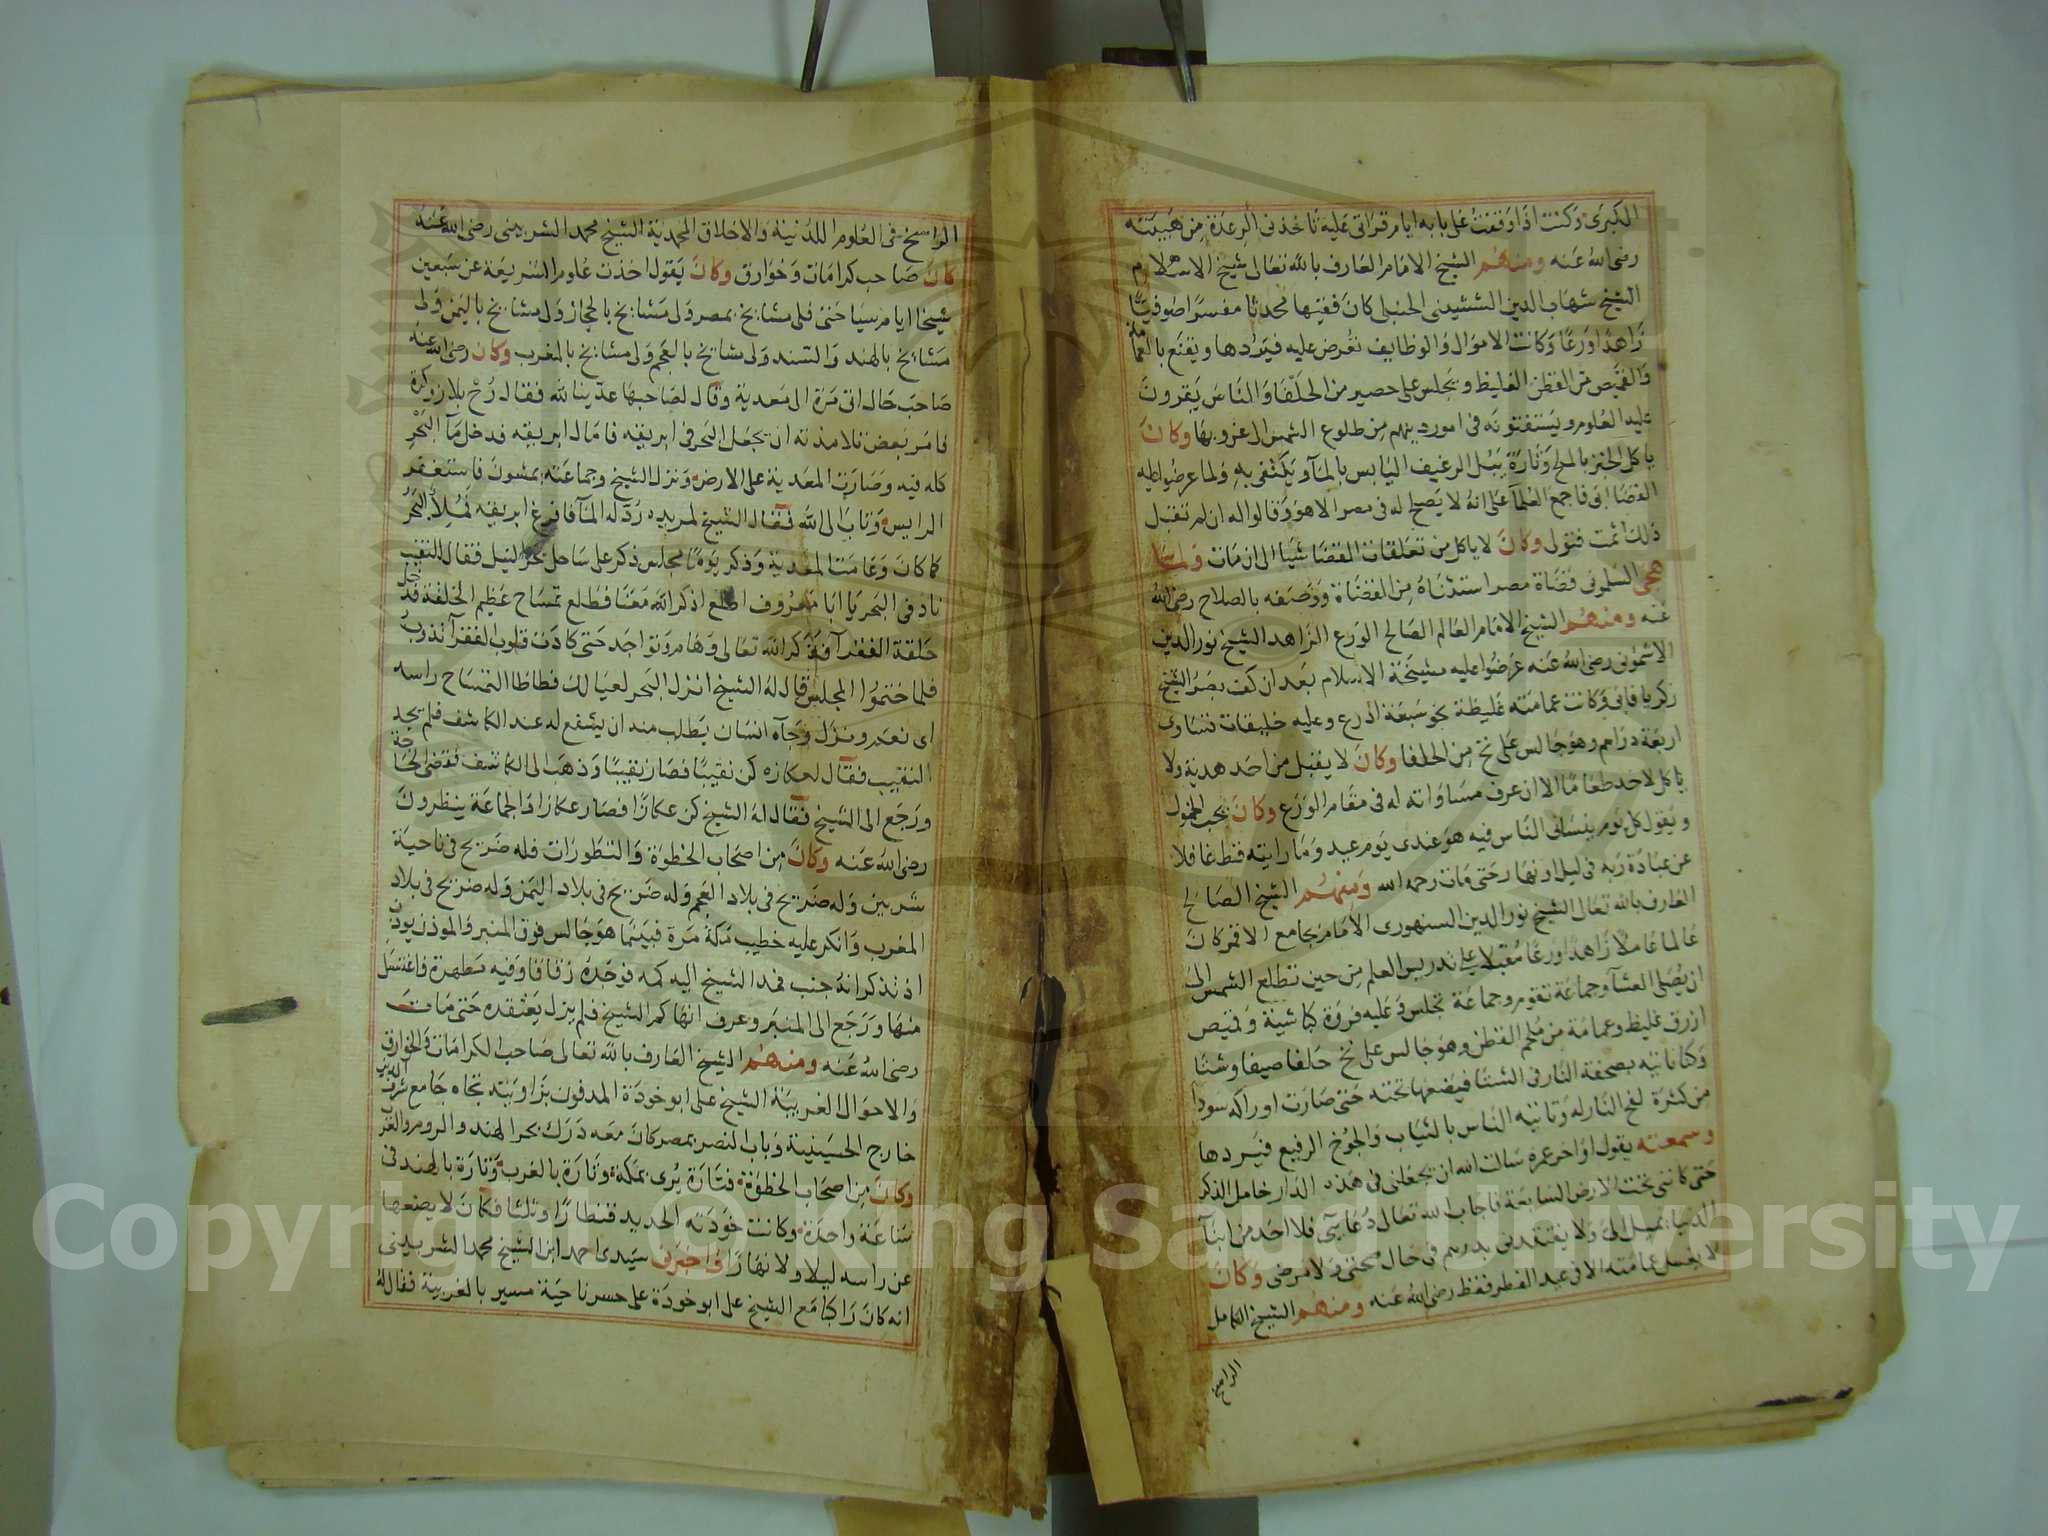 الكبرى وكنت اذا وقفت على بابه ايام قراتى عليه تاخذنى الرعدة من هيبته
رضى الله عنه ومنهم الشيخ الامام العارف بالله تعالى شيخ الاسلام
الشيخ شهاب الدين الششينى الحنبلى كان فقيها محدثا مفسرا صوفيا
زاهدا ورعا وكانت الاموال والوظايف تعرض عليه فيردها ويقنع بالعمامة
والقميص من القطن الغليظ ويجلس على حصير من الحلفا والناس يقرون
عليه العلوم ويستفتونه فى امور دينهم من طلوع الشمس الى غروبها وكان
ياكل الخبز بالملح وتارة يبل الرغيف اليابس بالماء ويكتفى به ولما عرضوا عليه
القضا ابى فاجمع العلما على انه لا يصلح له فى مصر الا هو وقالوا له ان لم تقبل
ذلك اثمت فتولى وكان لا ياكل من تعلقات القضا شيا الى ان مات ولما
هجى السلمونى قضاة مصر استثناه من القضاة ووصفه بالصلاح رضى الله
عنه ومنهم الشيخ الامام العالم الصالح الورع الزاهد الشيخ نور الدين
الاشمونى رضى الله عنه عرضوا عليه مشيخة الاسلام بعد ان كف بصر الشيخ
زكريا فابى وكانت عمامته غليظة نحو سبعة اذرع وعليه خليقات تساوى
اربعة دراهم وهو جالس على نخ من الحلفا وكان لا يقبل من احد هدية ولا
ياكل لاحد طعاما الا ان عرف مساواته له فى مقام الورع وكان يحب الخمول
ويقول كل يوم ينسانى الناس فيه هو عندى يوم عيد وما رايته قط غافلا
عن عبادة ربه فى ليل او نهار حتى مات رحمه الله ومنهم الشيخ الصالح
العارف بالله تعالى الشيخ نور الدين السنهورى الامام بجامع الاقمر كان
عالما عاملا زاهدا ورعا مقبلا على تدريس العلم من حين تطلع الشمس الى
ان يصلى العشا وجماعة تقوم وجماعة تجلس وعليه فروة كباشية وقميص
ازرق غليظ وعمامة من ملحم القطن وهو جالس على نخ حلفا صيفا وشتا
وكنا ناتيه بصحفة النار فى الشتا فيضعها تحته حتى صارت اوراكه سودا
من كثرة لفح النار له وتاتيه الناس بالثياب والجوخ الرفيع فيردها
وسمعته يقول اواخر عمره سالت الله ان يجعلنى فى هذه الدار خامل الذكر
حتى كاننى تحت الارض السابعة فاجاب الله تعالى دعايى فلا احد من ابنا
الدنيا يميل الى ولا يفتقدنى بدرهم فى حال صحتى ولا مرضى وكان
لا يغسل عمامته الا فى عيد الفطر فقط رضى الله عنه ومنهم الشيخ الكامل
الراسخ
الراسخ فى العلوم اللدنية والاخلاق المحمدية الشيخ محمد الشربينى رضى الله عنه
كان صاحب كرامات وخوارق وكان يقول اخذت علوم الشريعة عن سبعين
شيخا ايام سياحتى فلى مشايخ بمصر ولى مشايخ بالحجاز ولى مشايخ باليمن ولى
مشايخ بالهند والسند ولى مشايخ بالعجم ولى مشايخ بالمغرب وكان رضى الله عنه
صاحب حال اتى مرة الى معدية وقال لصاحبها عدّينا لله فقال رح بلا زوكرة
فامر بعض تلامذته ان يجعل البحر فى ابريقه فامال ابريقه فدخل ماء البحر
كله فيه وصارت المعدية على الارض ونزل الشيخ وجماعته يمشون فاستغفر
الرايس وتاب الى الله فقال الشيخ لمريده رد له الما فافرغ ابريقه فملا البحر
كما كان وعامت المعدية وذكر يوما مجلس ذكر على ساحل بحر النيل فقال للنقيب
ناد فى البحر يا ابا معروف اطلع اذكر الله معنا فطلع تمساح عظيم الخلقة فدخل
حلقة الفقرا فذكر الله تعالى وهام وتواجد حتى كادت قلوب الفقرا تذوب
فلما ختموا المجلس قال له الشيخ انزل البحر لعيالك فطاطا التمساح راسه
اى نعم ونزل وجاه انسان يطلب منه ان يشفع له عند الكاشف فلم يجد
النقيب فقال لعكازه كن نقيبا فصار نقيبا وذهب الى الكاشف فقضى الحاجة
ورجع الى الشيخ فقال له الشيخ كن عكازا فصار عكازا والجماعة ينظرون
رضى الله عنه وكان من اصحاب الخطوة والتطورات فله ضريح فى ناحية
شربين وله ضريح فى بلاد العجم وله ضريح فى بلاد اليمن وله ضريح فى بلاد
المغرب وانكر عليه خطيب مكة مرة فبينما هو جالس فوق المنبر والموذن يوذن
اذ تذكر انه جنب فمد الشيخ اليه كمه فوجده زقاقا وفيه مطهرة فاغتسل
منها ورجع الى المنبر وعرف انها كم الشيخ فلم يزل يعتقده حتى مات
رضى الله عنه ومنهم الشيخ العارف بالله تعالى صاحب الكرامات والخوارق
والاحوال الغريبة الشيخ على ابو خودة المدفون بزاويته تجاه جامع شرف الدين
خارج الحسينية وباب النصر بمصر كان معه درك بحر الهند والروم والغرب
وكان من اصحاب الخطوة فتارة يرى بمكة وتارة بالغرب وتارة بالهند فى
ساعة واحدة وكانت خودته الحديد قنطارا وثلثا فكان لا يضعها
عن راسه ليلا ولا نهارا واخبرنى سيدى احمد ابن الشيخ محمد الشربينى
انه كان راكبا مع الشيخ على ابو خودة على جسر ناحية مسير بالغربية فقال له
Copyright © King Saud University
1957